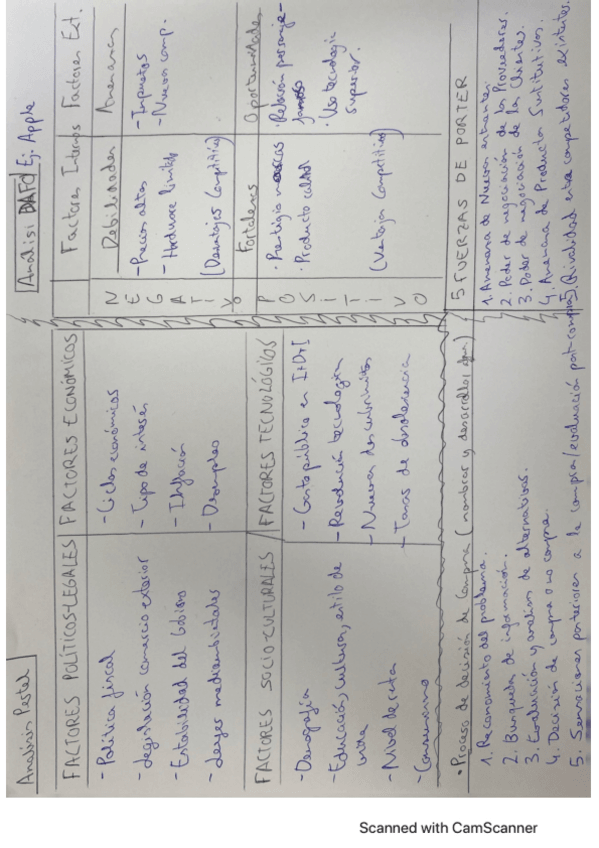 Analisis Pestel
FACTORES POLÍTICOS-LEGALES
- Política fiscal
- Legislación comercio exterior
- Estabilidad del Gobierno
- Leyes medioambientales
FACTORES ECONÓMICOS
- Ciclos económicos
- Tipo de interés
- Inflación
- Desempleo
FACTORES SOCIO-CULTURALES
- Demografía
- Educación, cultura, estilo de
vida
- Nivel de renta
- Consumismo
FACTORES TECNOLÓGICOS
- Gasto público en I+D+I
- Revolución tecnologica
- Nuevos descubrimientos
- Tasas de obsolescencia
• Proceso de decisión de compra (nombrar y desarrollar
1. Reconocimiento del problema.
2. Busqueda de información.
3. Evaluación y analisis de alternativas.
4. Decisión de compra o no compra.
5. Sensaciones posteriores a la compra/evaluación post-compra
Analisi DAFO Ej: Apple
Factores Internos
Factores Ext.
NEGATIVO
Debilidades
- Precios altos
- Hardware limitado
(Desventajas Competitivas)
Amenazas
- Impuestos
- Nuevos comp.
POSITIVO
Fortalezas
· Prestigio marcas
· Producto calidad
(Ventajas Competitivas)
Oportunidades
· Relación
· Uso tecnologia
superior.
5 FUERZAS DE PORTER
1. Amenaza de Nuevos entrantes.
2. Poder de negociación de los Proveedores.
3. Poder de negociación de los Clientes.
4. Amenaza de Productos Sustitutivos.
5. Rivalidad entre competidores existentes.
Scanned with CamScanner